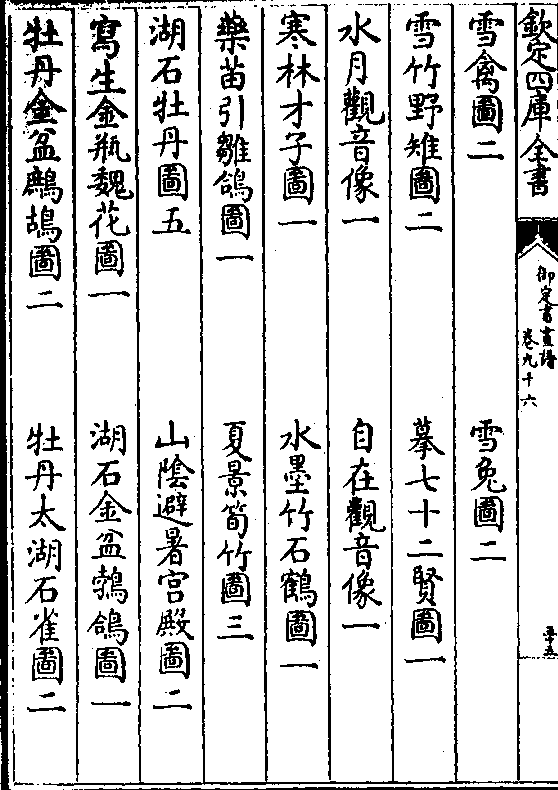 欽定四庫全書
御定書畫譜
卷九十六
雪禽圖二　雪兔圖二
雪竹野雉圖二　摹七十二賢圖一
水月觀音像一　自在觀音像一
寒林才子圖一　水墨竹石鶴圖一
藥苗引雛鴿圖一　夏景筍竹圖三
湖石牡丹圖五　山陰避暑宫殿圖二
寫生金瓶魏花圖一　湖石金盆鵓鴿圖一
牡丹金盆鷓鴣圖二　牡丹太湖石雀圖二